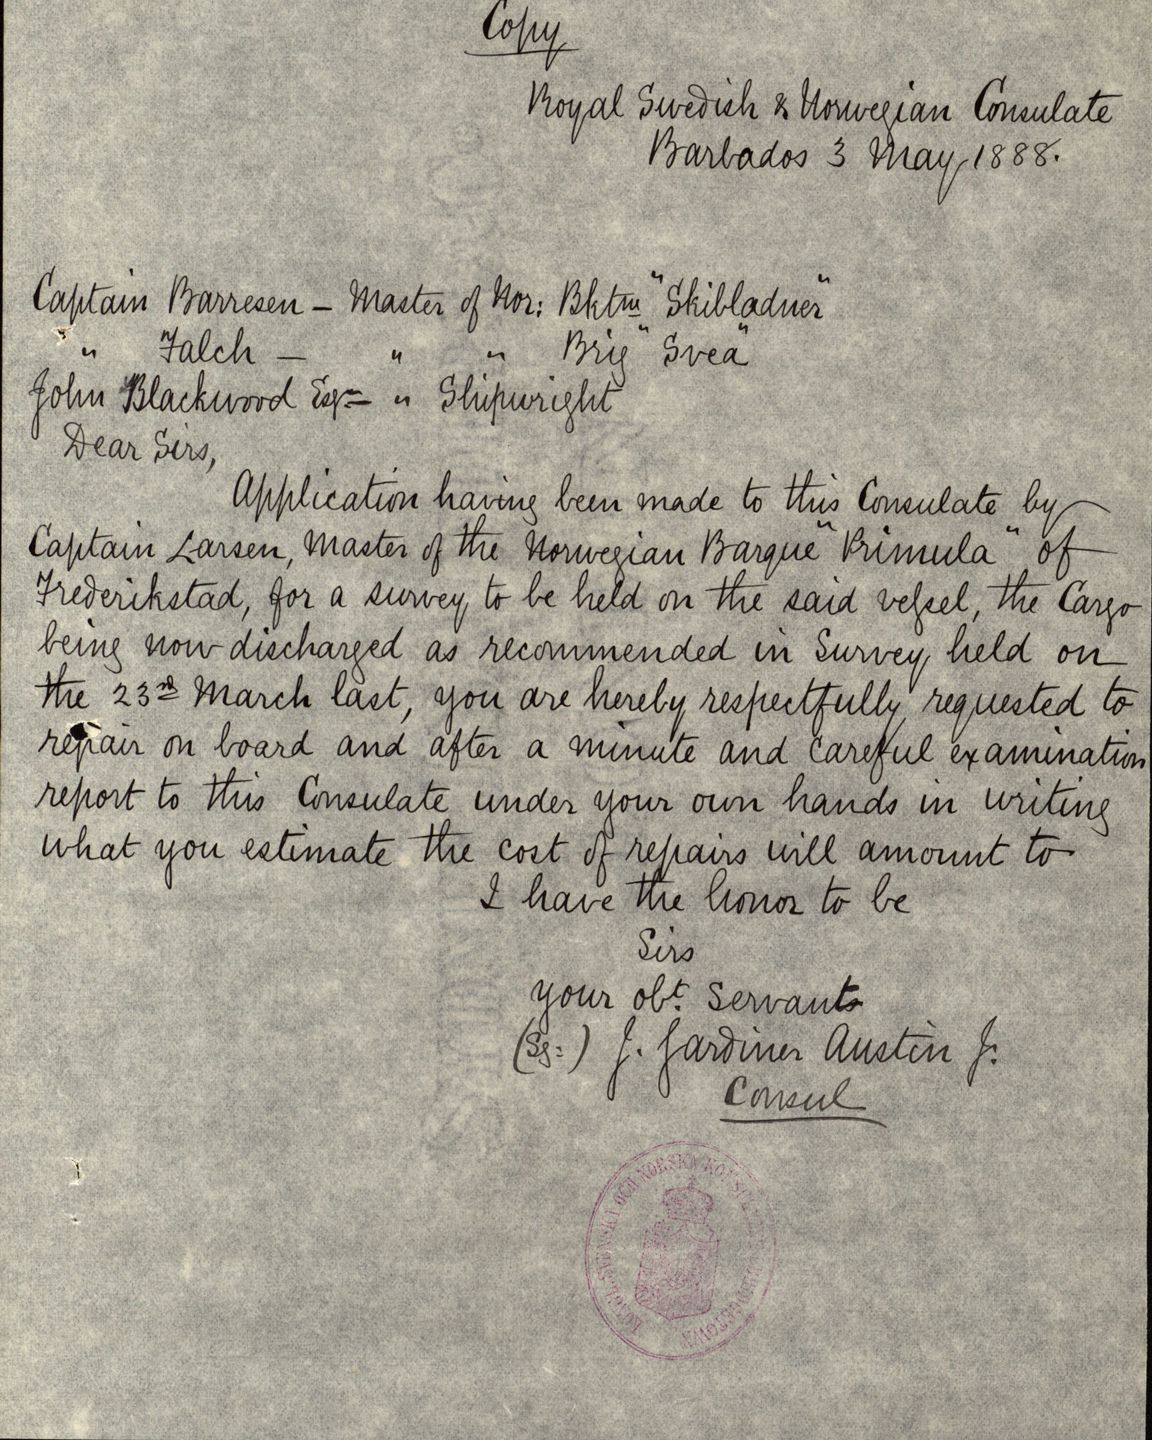 Copy
Royal Swedish & Norwegian Consulate
Barbados 3 May 1888.
Captain Barresen – Master of Nor: Bktne "Skibladner"
" Falch – " " Brig "Svea"
John Blackwood Esqre – " Shipwright
Dear Sirs,
Application having been made to this Consulate by
Captain Larsen, Master of the Norwegian Barque "Primula" of
Frederikstad, for a survey to be held on the said vessel, the Cargo
being now discharged as recommended in Survey held on
the 23rd March last, you are hereby respectfully requested to
repair on board and after a minute and careful examination
report to this Consulate under your own hands in writing
what you estimate the cost of repairs will amount to
I have the honor to be
Sirs
your obt. Servants
(Sg:) J. Gardiner Austin Jr.
Consul
OCH NORSKA